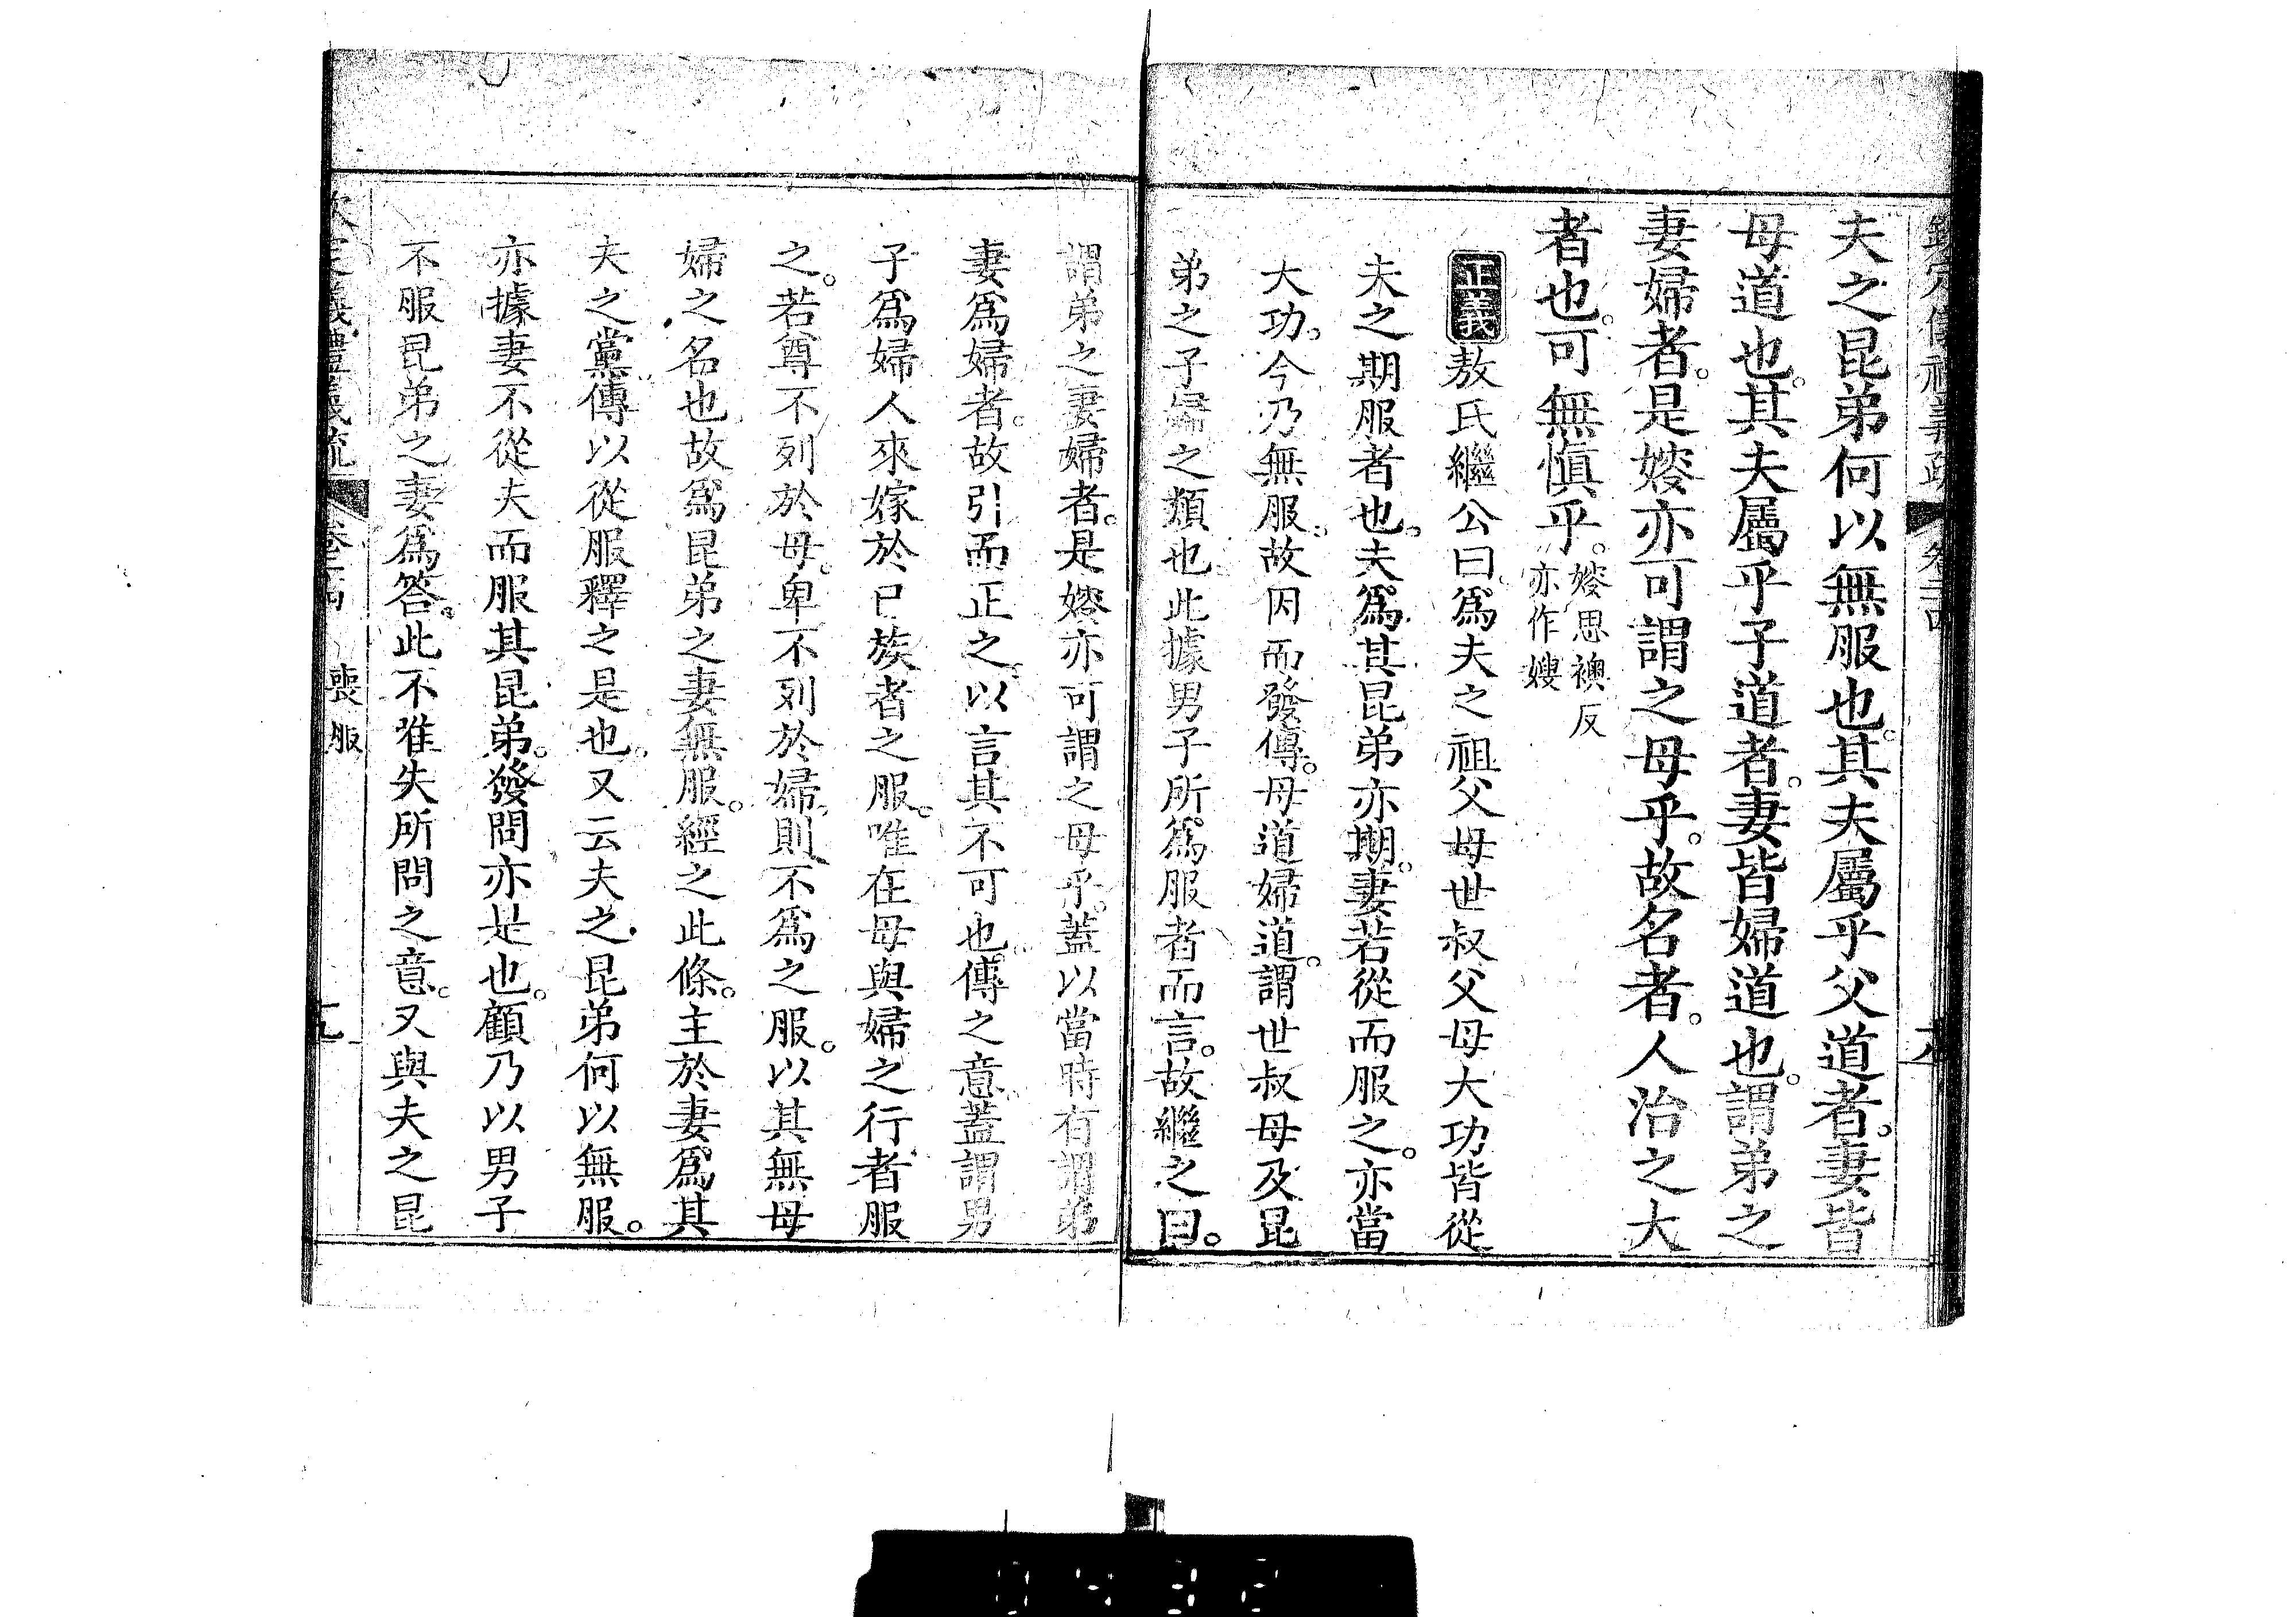 夫之昆弟何以無服也。其夫屬乎父道者。妻皆
母道也。其夫屬乎子道者。妻皆婦道也。謂弟之
妻婦者。是嫂亦可謂之母乎。故名者。人治之大
者也。可無慎乎。嫂思襖反
亦作嫂
正義敖氏繼公曰。為夫之祖父母世叔父母大功皆從
夫之期服者也。夫為其昆弟亦期。妻若從而服之。亦當
大功。今乃無服。故因而發傳。母道婦道。謂世叔母及昆
弟之子婦之類也此據男子所為服者而言。故繼之曰。
謂弟之妻婦者。是嫂亦可謂之母乎。蓋以當時有謂弟
妻為婦者。故引而正之。以言其不可也。傳之意。蓋謂男
子為婦人來嫁於己族者之服。唯在母與婦之行者服
之。若尊不列於母。卑不列於婦。則不為之服。以其無母
婦之名也故為昆弟之妻無服。經之此條。主於妻為其
夫之黨傳以從服釋之是也。又云夫之昆弟何以無服。
亦據妻不從夫而服其昆弟。發問亦是也。顧乃以男子
不服昆弟之妻為答。此不惟失所問之意。又與夫之昆
欽定儀禮義疏 卷二十四 喪服